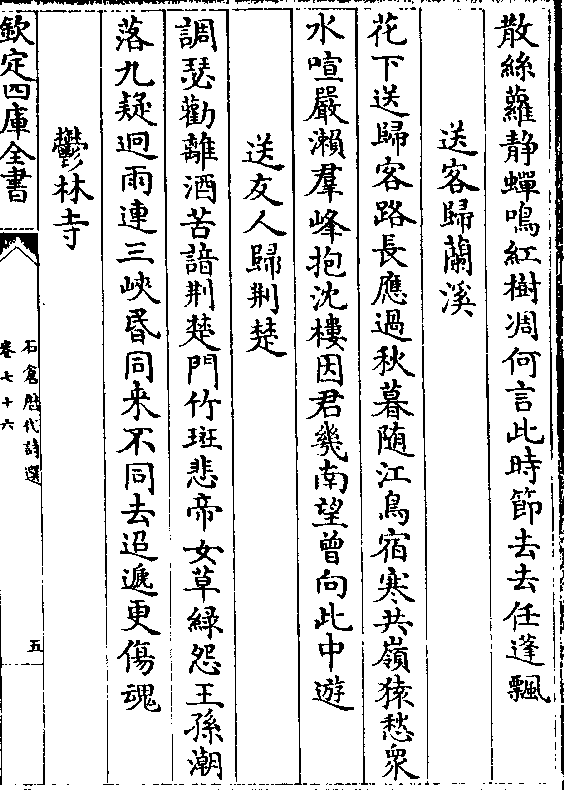 散絲蘿静蟬鳴紅樹凋何言此時節去去任蓬飄
送客歸蘭溪
花下送歸客路長應過秋暮随江鳥宿寒共嶺猿愁衆
水喧嚴瀨羣峰抱沈樓因君幾南望曾向此中遊
送友人歸荆楚
調瑟勸離酒苦諳荆楚門竹斑悲帝女草緑怨王孫潮
落九疑迥雨連三峽昏同来不同去迢遞更傷魂
鬱林寺
欽定四庫全書
石倉歴代詩選
卷七十六
五